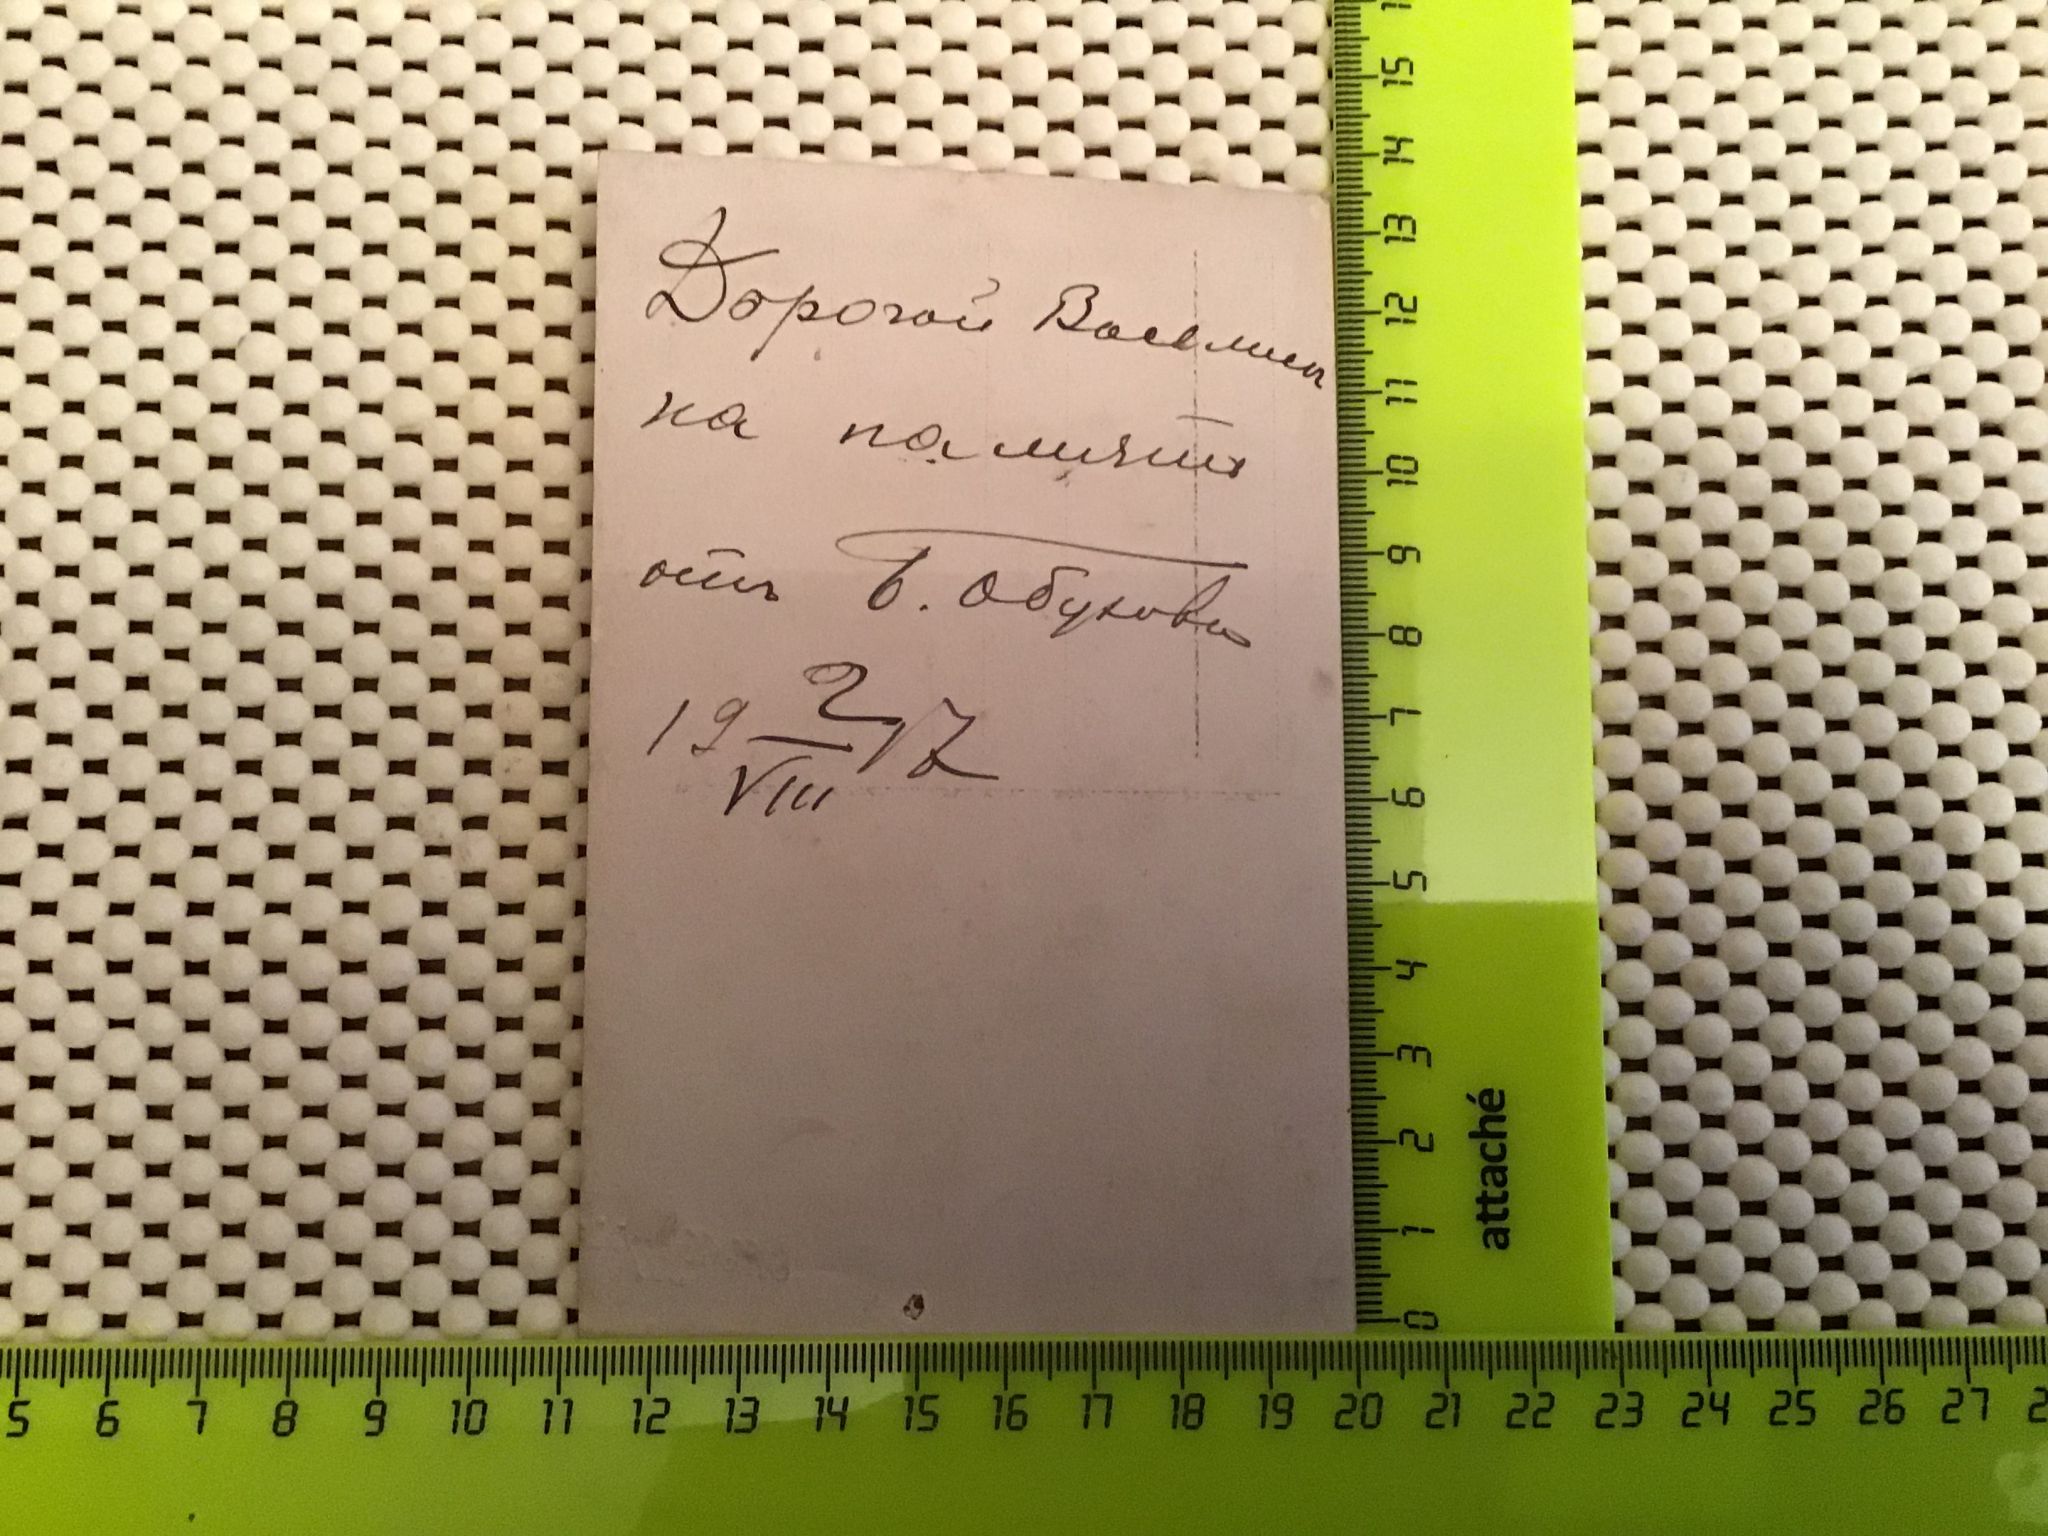 Дорогой
на память
отъ Е. Обуховъ
19 2/VIII 17
15
14
13
12
11
10
9
8
7
6
5
4
3
2
1
0
attaché
5 6 7 8 9 10 11 12 13 14 15 16 17 18 19 20 21 22 23 24 25 26 27